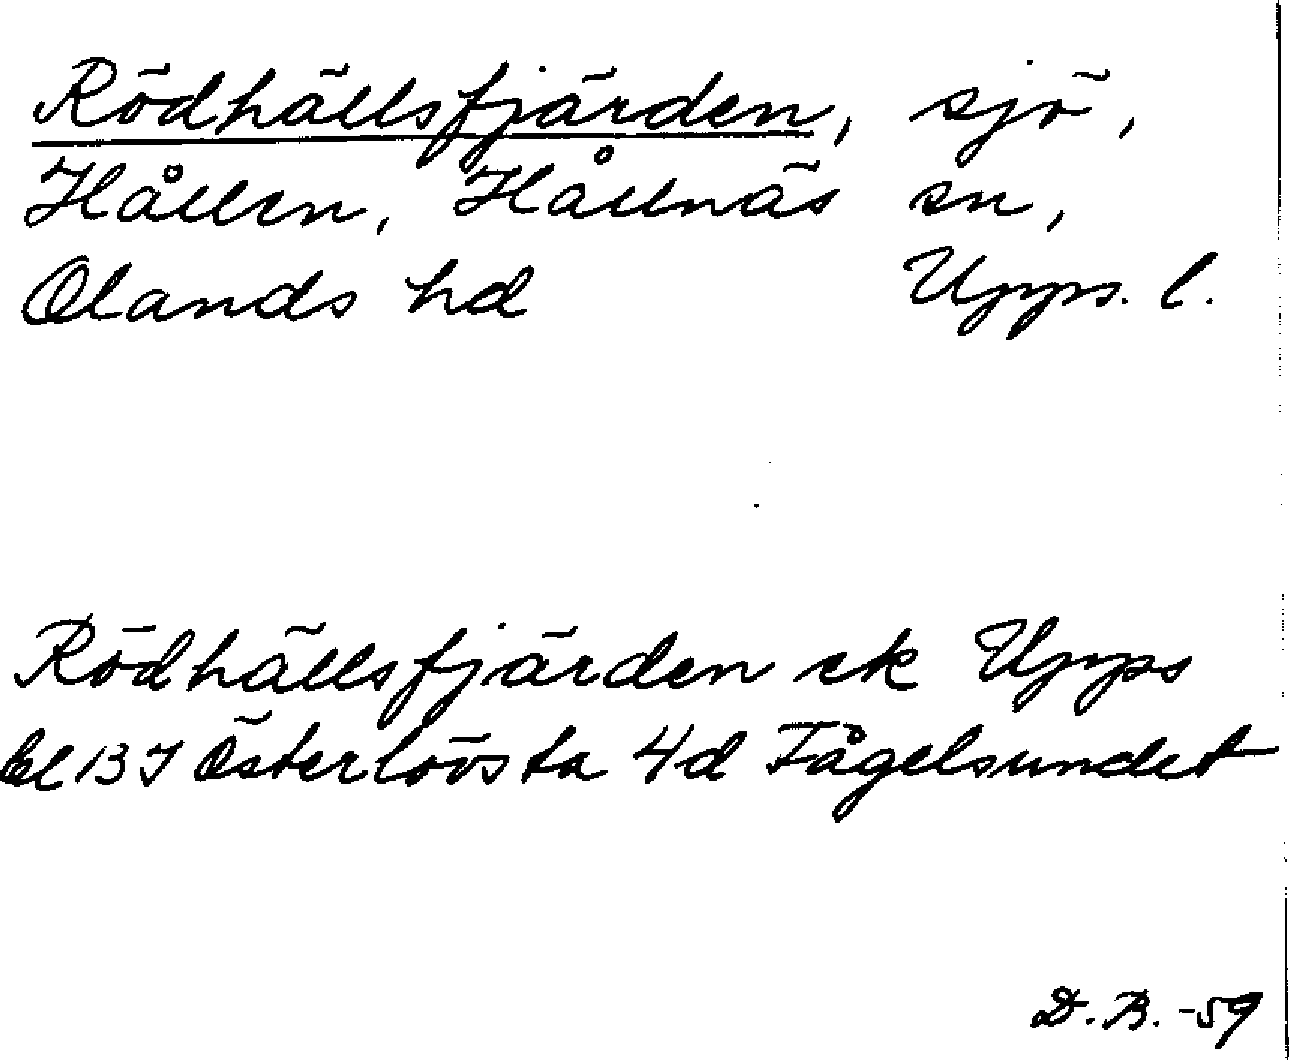 Rödhällsfjärden, sjö,
Hållen, Hållnäs sn,
Olands hd Upps. l.
Rödhällsfjärden ek Upps
bl 13 I Österlövsta 4d Fågelsundet
D.R. -59